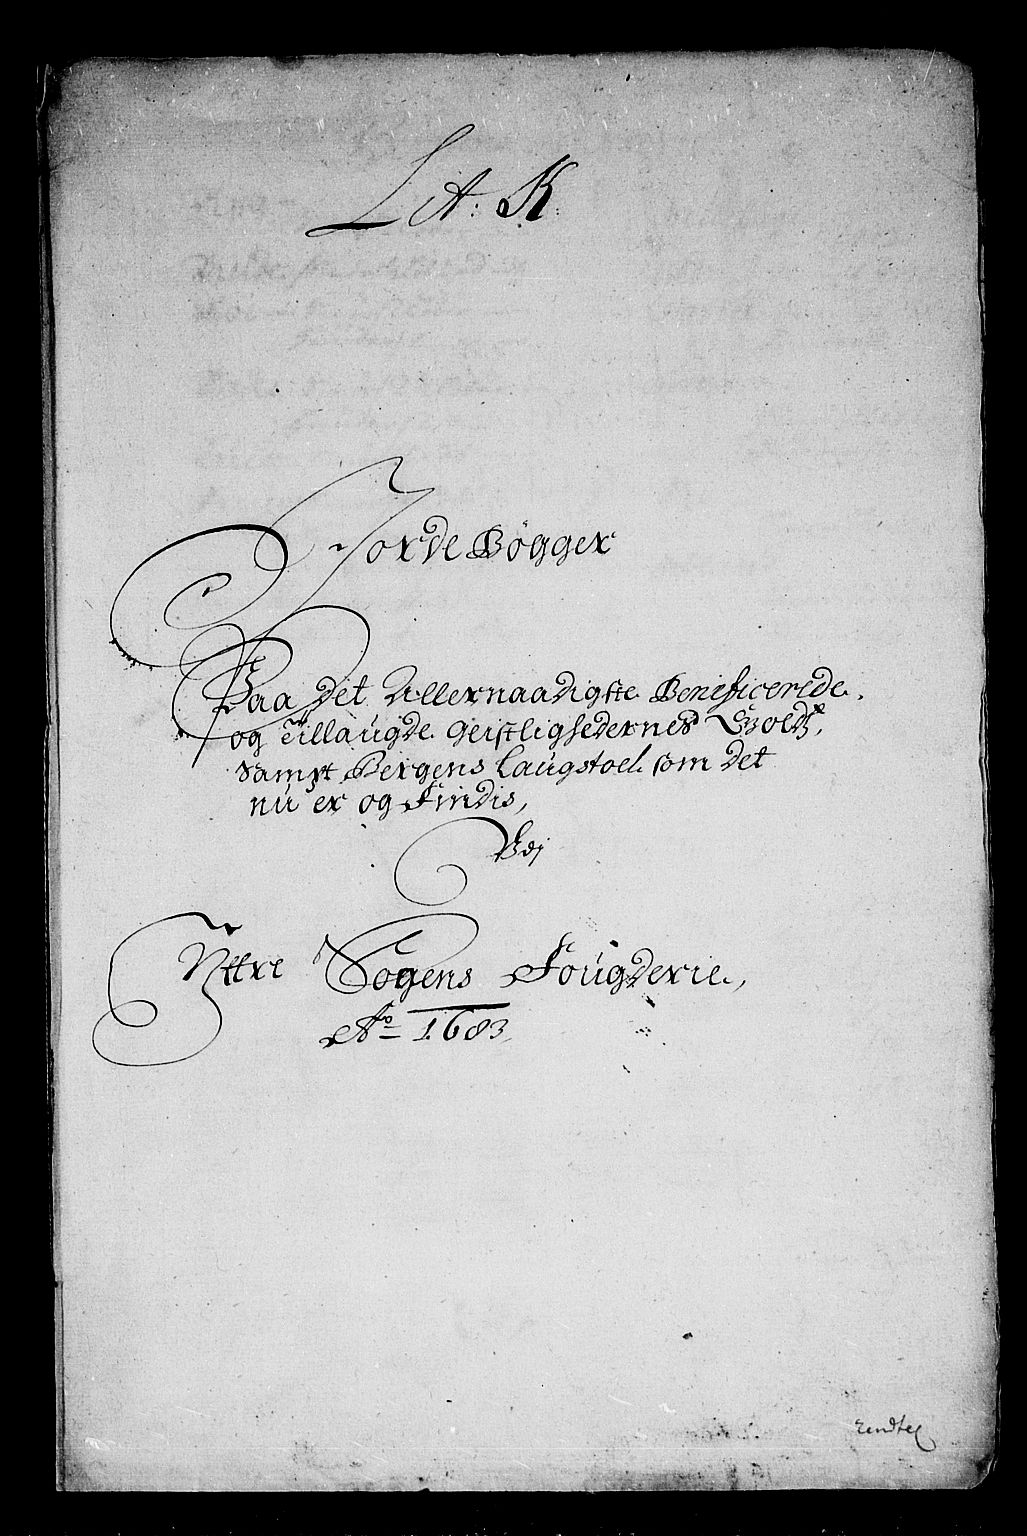 Lit: K:
Jorde Bøgger
Paa Det Allernaadigste Beneficerede.
og Tillaugde Geistlighedernes Goedtz,
Sampt Bergens Laugstoel. som det
nu er og Findis,
Udj
Yttre Sogens Fougderie,
Aō 1683.